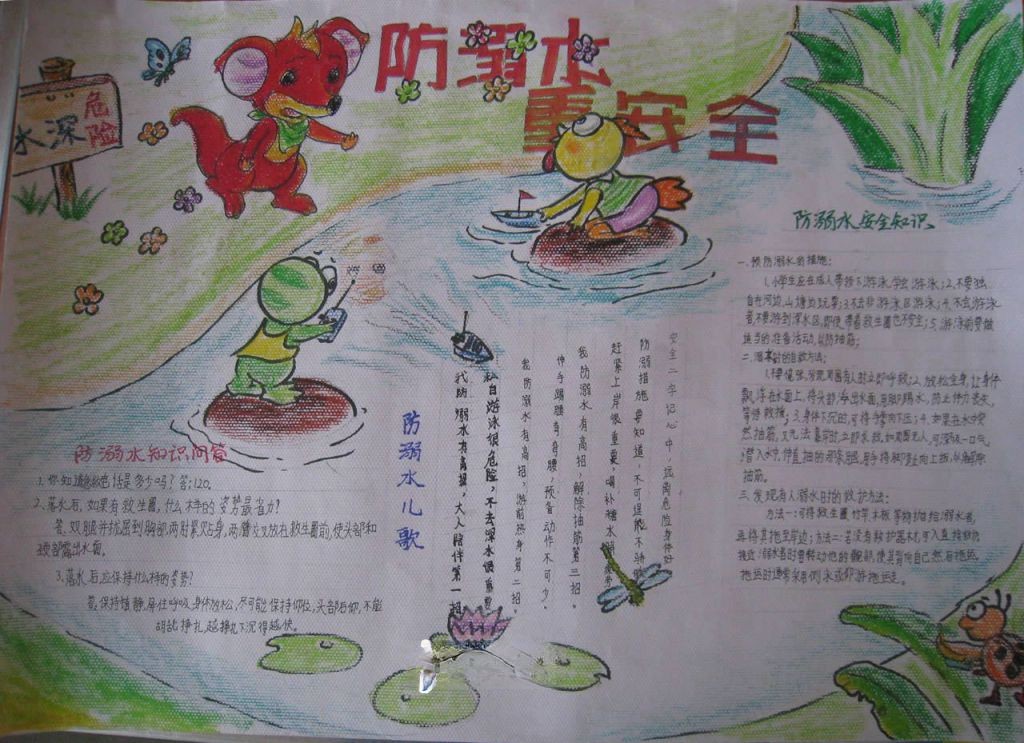 防溺水
重安全
危险
水深
防溺水安全知识
一.预防溺水的措施:
1.小学生应在成人带领下游泳,学会游泳;2.不要独
自在河边、山塘边玩耍;3.不去非游泳区游泳;4.不会游泳
者,不要游到深水区,即使带着救生圈也不安全;5.游泳前要做
适当的准备活动,以防抽筋;
二.溺水时的自救方法:
1.不要慌张,发现周围有人时立即呼救;2.放松全身,让身体
飘浮在水面上,将头部浮出水面,用脚踢水,防止体力丧失,
等待救援;3.身体下沉时,可将手掌向下压;4.如果在水中突
然抽筋,又无法靠岸时,立即求救,如周围无人,可深吸一口气,
潜入水中,伸直抽筋那条腿,用手将脚趾向上扳,以解除
抽筋。
三.发现有人溺水时的救护方法:
方法一:可将救生圈、竹竿、木板等物抛给溺水者,
再将其拖至岸边;
拖运时通常采用侧泳或仰游拖运法。
防溺水知识问答
1.你知道急救电话是多少吗?答:120。
2.落水后,如果有救生圈,什么样的姿势最省力?
答.双腿并拢屈到胸部,两肘紧贴身,两臂交叉放在救生圈前,使头部和
颈部露出水面。
3.落水后应保持什么样的姿势?
答.保持镇静,屏住呼吸,身体放松,尽可能保持仰位,头部后仰,不能
胡乱挣扎,越挣扎下沉得越快。
防溺水儿歌
安全二字记心中,远离危险身体好
防溺措施要知道,不可逞能
赶紧上岸很重要,喝补糖水
我防溺水有高招,解除抽筋第三招。
伸手踢腿弯弯腰,预备动作不可少。
我防溺水有高招,游前热身第二招。
私自游泳很危险,不去深水
我防溺水有高招,大人陪伴第一招